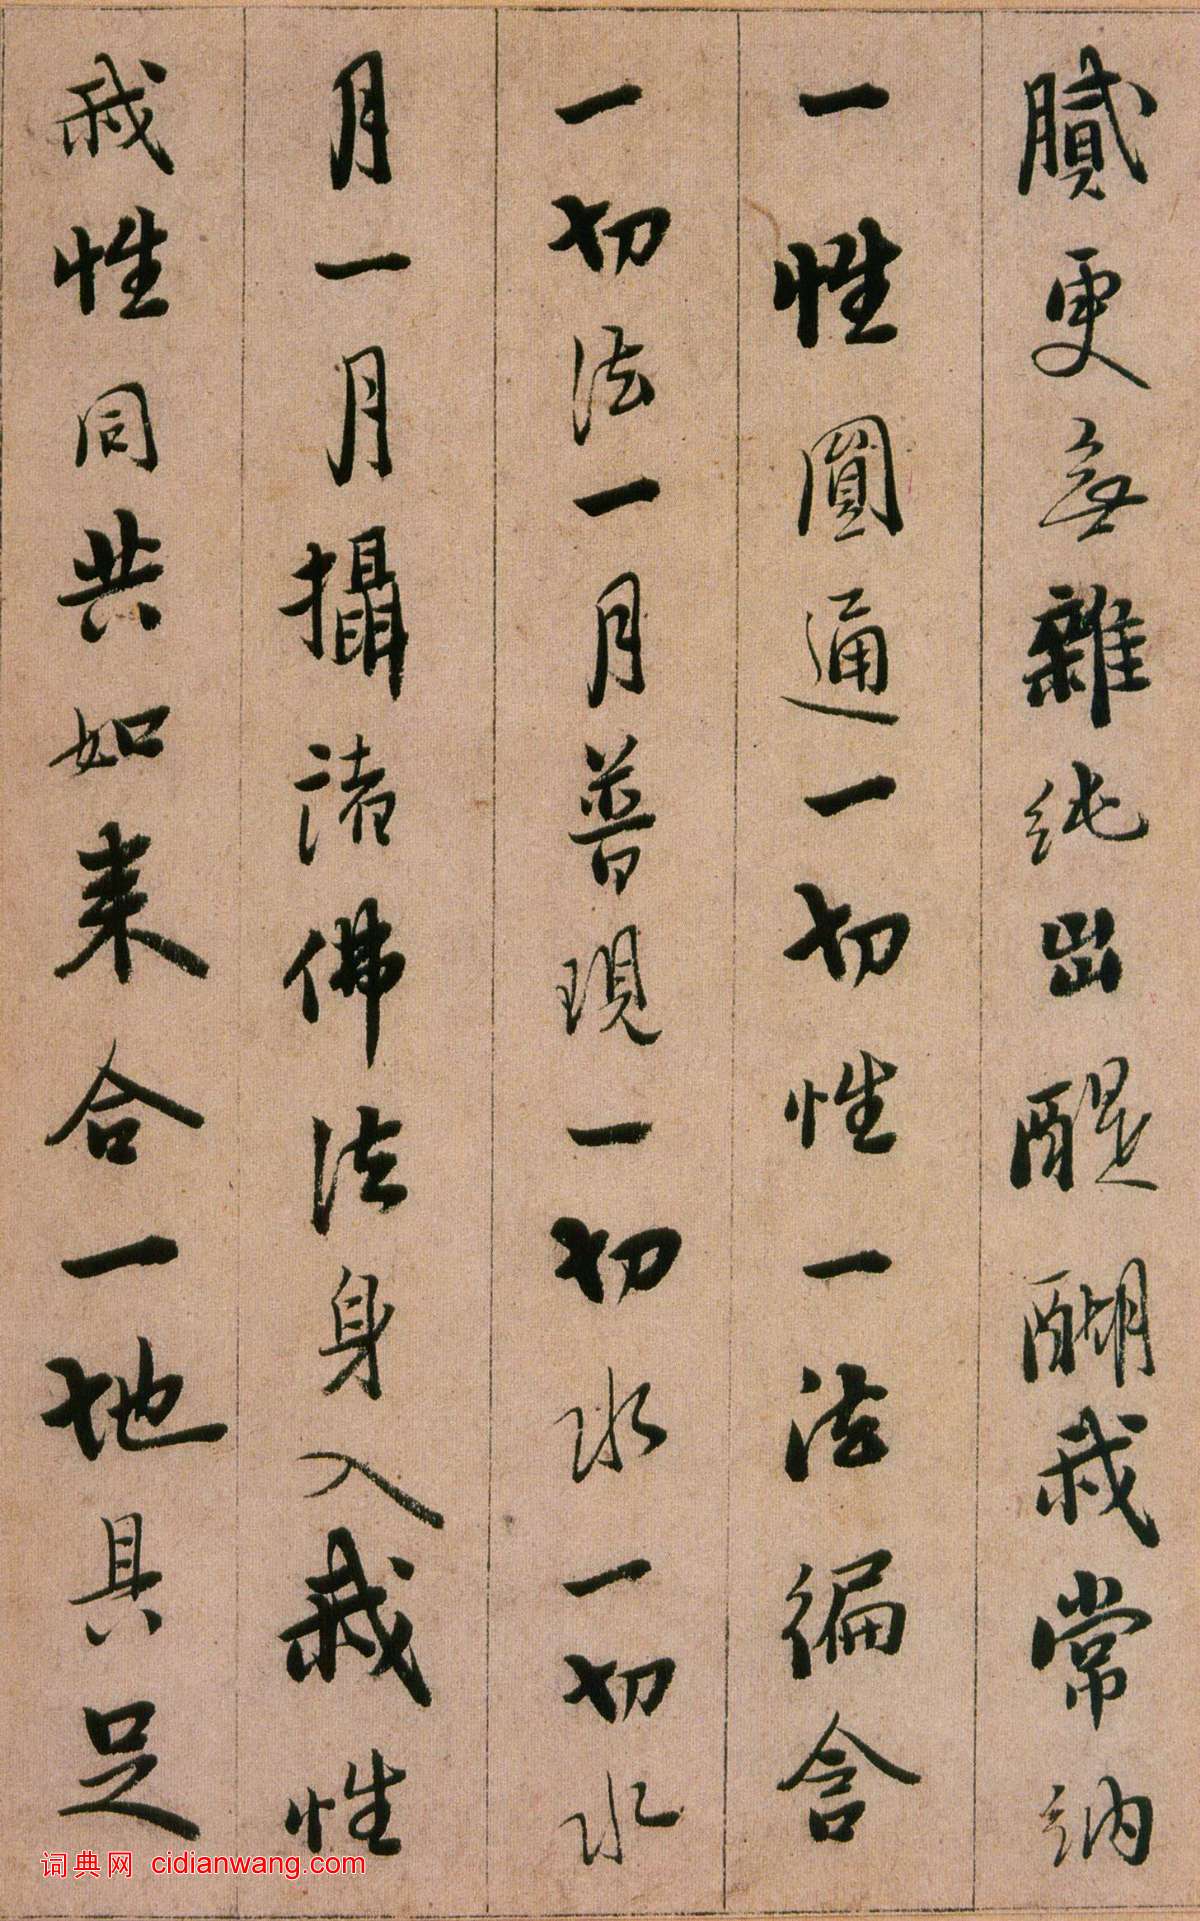 膩更無雜純出醍醐我常納
一性圓通一切性一法徧含
一切法一月普現一切水一切水
月一月攝諸佛法身入我性
我性同共如来合一地具足
词典网 cidianwang.com